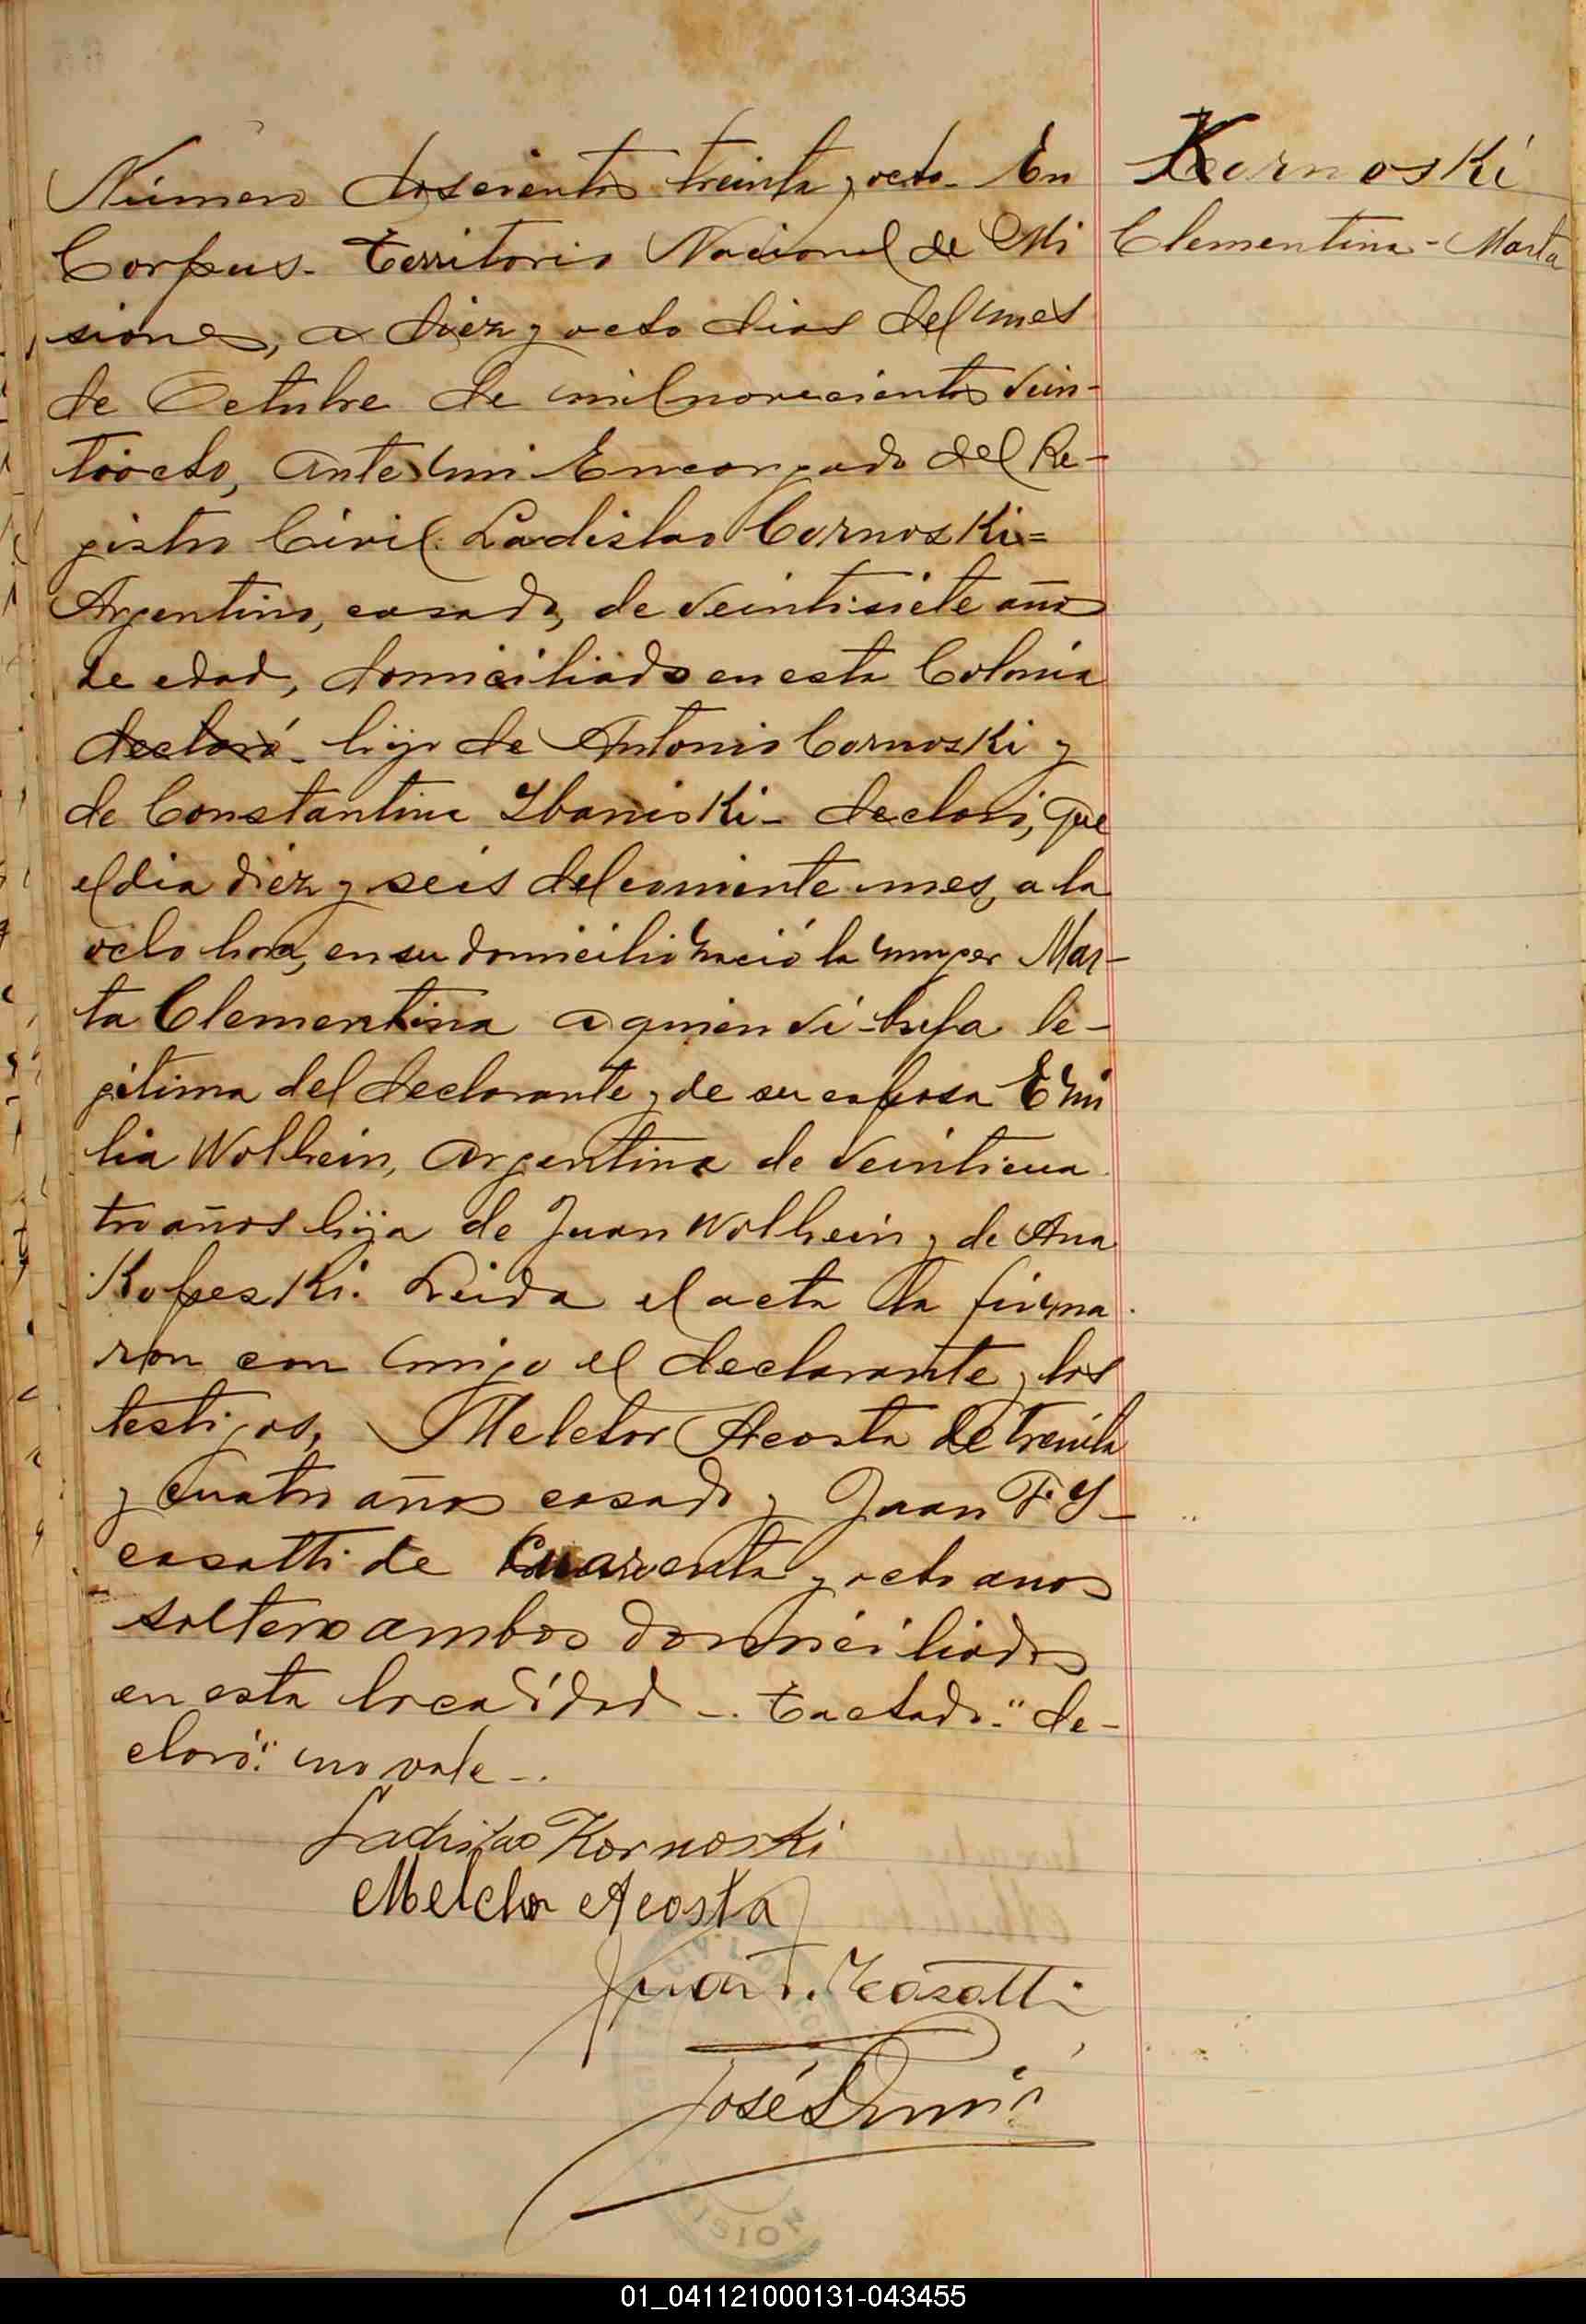 Kornoski
Clementina - Marta
Número doscientos treinta y ocho - En
Corpus - Territorio Nacional de Mi
siones, a diez y ocho dias del mes
de Octubre de mil novecientos vein-
tiocho, ante mi Encargado del Re-
gistro Civil: Ladislao Cornoski =
Argentino, casado, de veintisiete años
de edad, domiciliado en esta Colonia
declaró - hijo de Antonio Cornoski y
de Constantina Ibaniski - declaró, que
el dia diez y seis del corriente mes, a la
ocho hora, en su domicilio nació la mujer Mar-
ta Clementina a quien vi - hija le-
gitima del declarante y de su esposa Emi
lia Wolhein, argentina de veinticua
tro años hija de Juan Wolhein y de Ana
Kopeski. Leida el acta la firma
ron con migo el declarante y los
testigos, Melchor Acosta de treinta
y cuatro años casado y Juan F. Y-
casatti de cuarenta y ocho anos
soltero ambos domiciliados
en esta localidad -. Tachado: " de-
claró": no vale -.
Ladislao Kornoski
Melchor Acosta
Juan F. Ycasatti
José
01_041121000131-043455